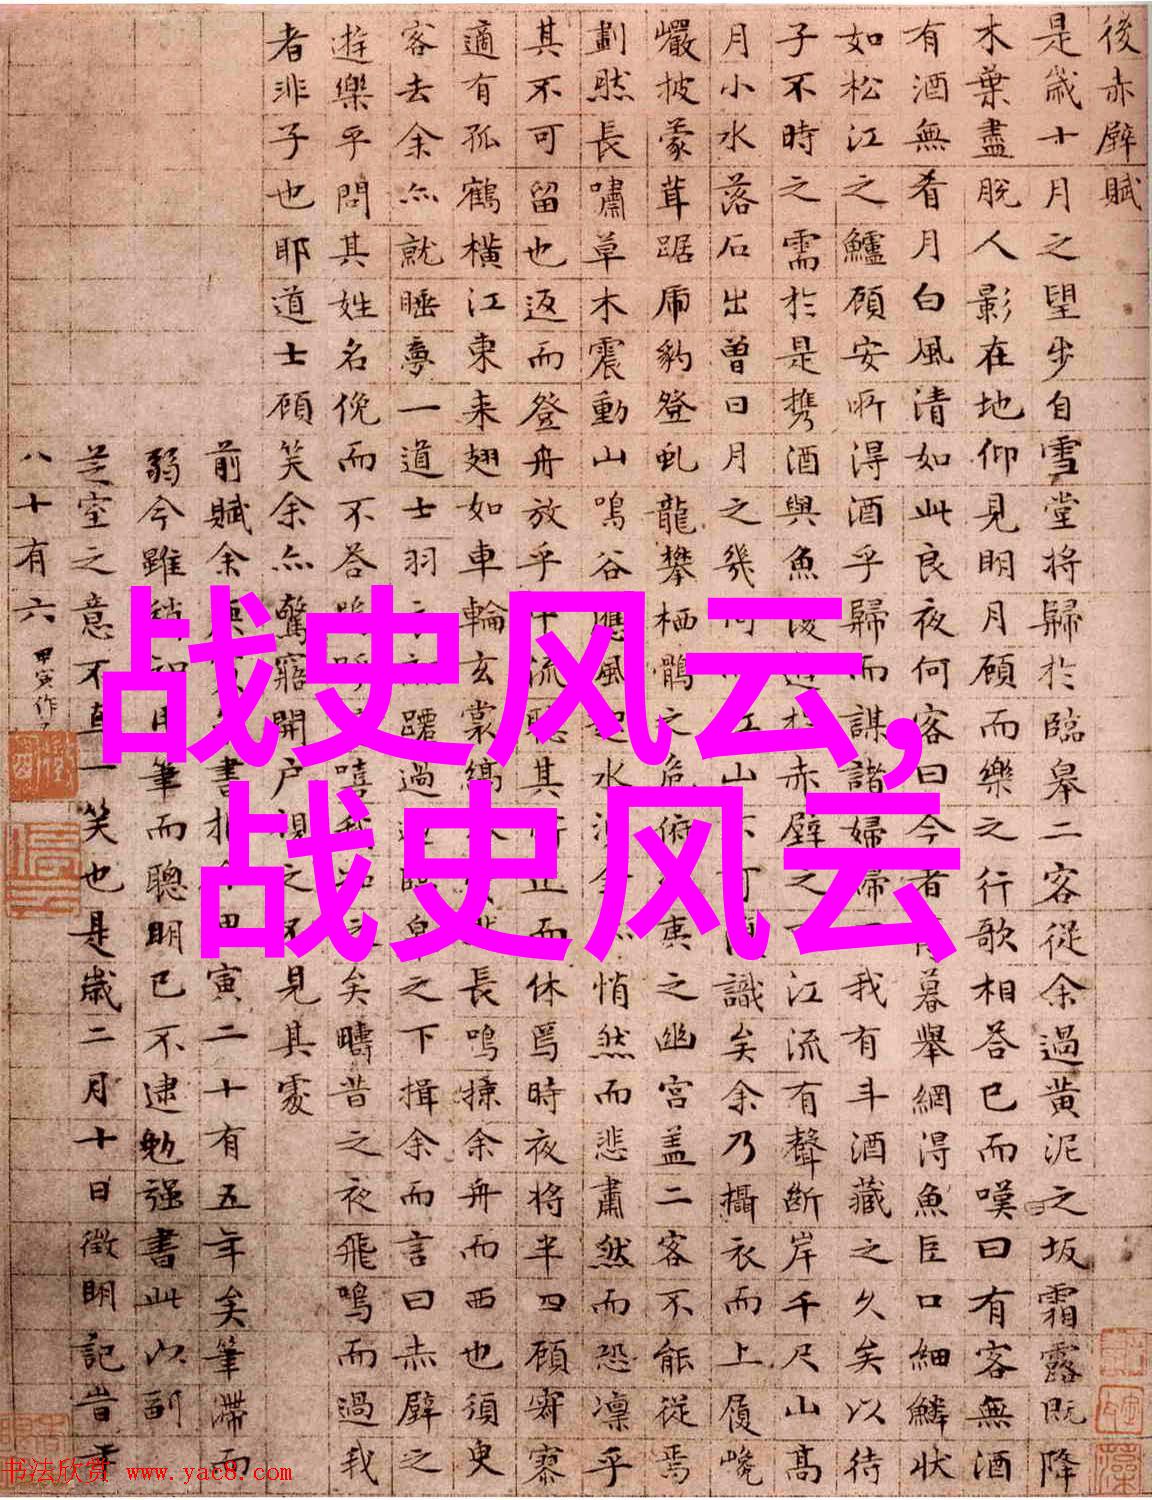 後赤壁賦
是歲十月之望步自雪堂將歸於臨皋二客從余過黃泥之坂霜露既降
木葉盡脫人影在地仰見明月顧而樂之行歌相答已而嘆曰有客無酒
有酒無肴月白風清如此良夜何客曰今者暮舉網得魚巨口細鱗狀
如松江之鱸顧安所得酒乎歸而謀諸婦婦我有斗酒藏之久矣以待
子不時之需於是攜酒與魚復遊於赤壁之江流有聲斷岸千尺山高
月小水落石出曾日月之幾何江山不可復識矣余乃攝衣而上履巉
巖披蒙茸踞虎豹登虬龍攀栖鶻之危俯夷之幽宮蓋二客不能從焉
劃然長嘯草木震動山鳴谷應風起水涌余亦悄然而悲肅然而恐凜乎
其不可留也返而登舟放乎中流聽其所止而休焉時夜將半四顧寂寥
適有孤鶴橫江東來翅如車輪玄裳縞衣然長鳴掠余舟而西也須臾
客去余亦就睡夢一道士羽衣躚過臨皋之下揖余而言曰赤壁之
遊樂乎問其姓名俛而不答嗚呼嘻我知之矣疇昔之夜飛鳴而過我
者非子也耶道士顧笑余亦驚寤開戶視之不見其處
前賦余庚書甲寅二十有五年矣筆滯而
弱今雖稍知用筆而聰明已不逮勉强書此以副
芝室之意不直一笑也是歲二月十日徵明記昔年
八十有六 甲寅作
战史风云,
战史风云
书法欣赏 www.yac8.com